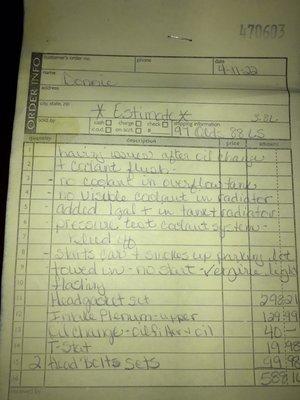 470603
customer's order no. phone date
4-11-22
name
Donnie
address
city, state, zip
* Estimate *
sold by cash charge check shipping information
c.o.d. on acct. #
97 Olds 88 LS
ORDER INFO
quantity description price amount
1 having issues after oil change
2 + coolant flush.
3 - no coolant in overflow tank
4 - no visible coolant in radiator
5 - added 1gal + in tank + radiator
6 - pressure test coolant system -
7
8 - starts car + smokes up parking lot
9 towed in - no start - engine light
10 flashing
11 Headgasket set 293.21
12 Intake Plenum - upper 129.99
13 Oil change - oil filter + oil 40.-
14 T-Stat 19.98
15 2 Head bolts sets 99.98
16 588.16
received by